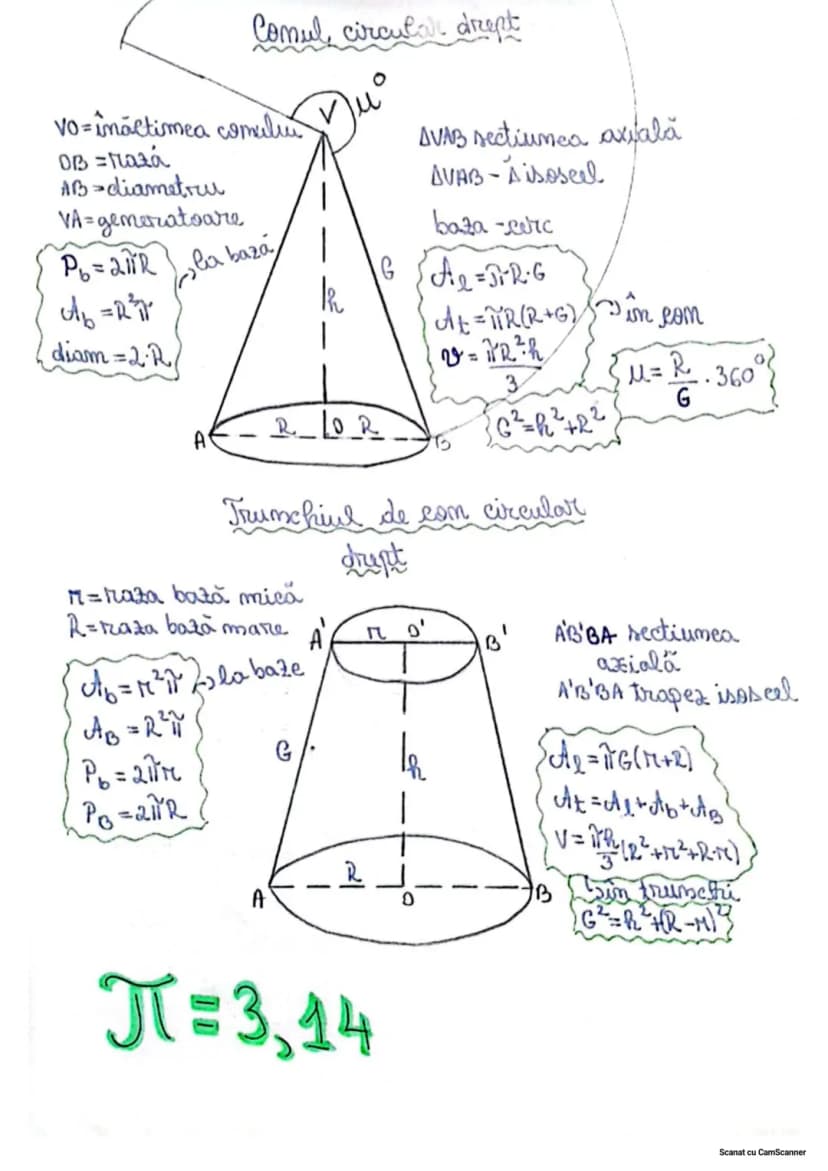 Conul circular drept
VO = înălțimea conului
OB = rază
AB = diametru
VA = generatoare
P_b = 2πR → la bază
A_b = R²π
diam = 2·R
V u°
G
h
A R O R B
ΔVAB secțiunea axială
ΔVAB - Δ isoscel
baza - cerc
A_l = π·R·G
A_t = πR(R+G) → în con
v = πR²·h / 3
u = R/G · 360°
G² = h² + R²
Trunchiul de con circular
drept
r = raza bază mică
R = raza bază mare
A_b = r²π → la baze
A_B = R²π
P_b = 2πr
P_B = 2πR
A' r O' B'
G
h
R
A O B
A'B'BA secțiunea
axială
A'B'BA trapez isoscel
A_l = πG(r+R)
A_t = A_l + A_b + A_B
V = πh/3 (R² + r² + R·r)
→ în trunchi
G² = h² + (R - r)²
π = 3,14
Scanat cu CamScanner